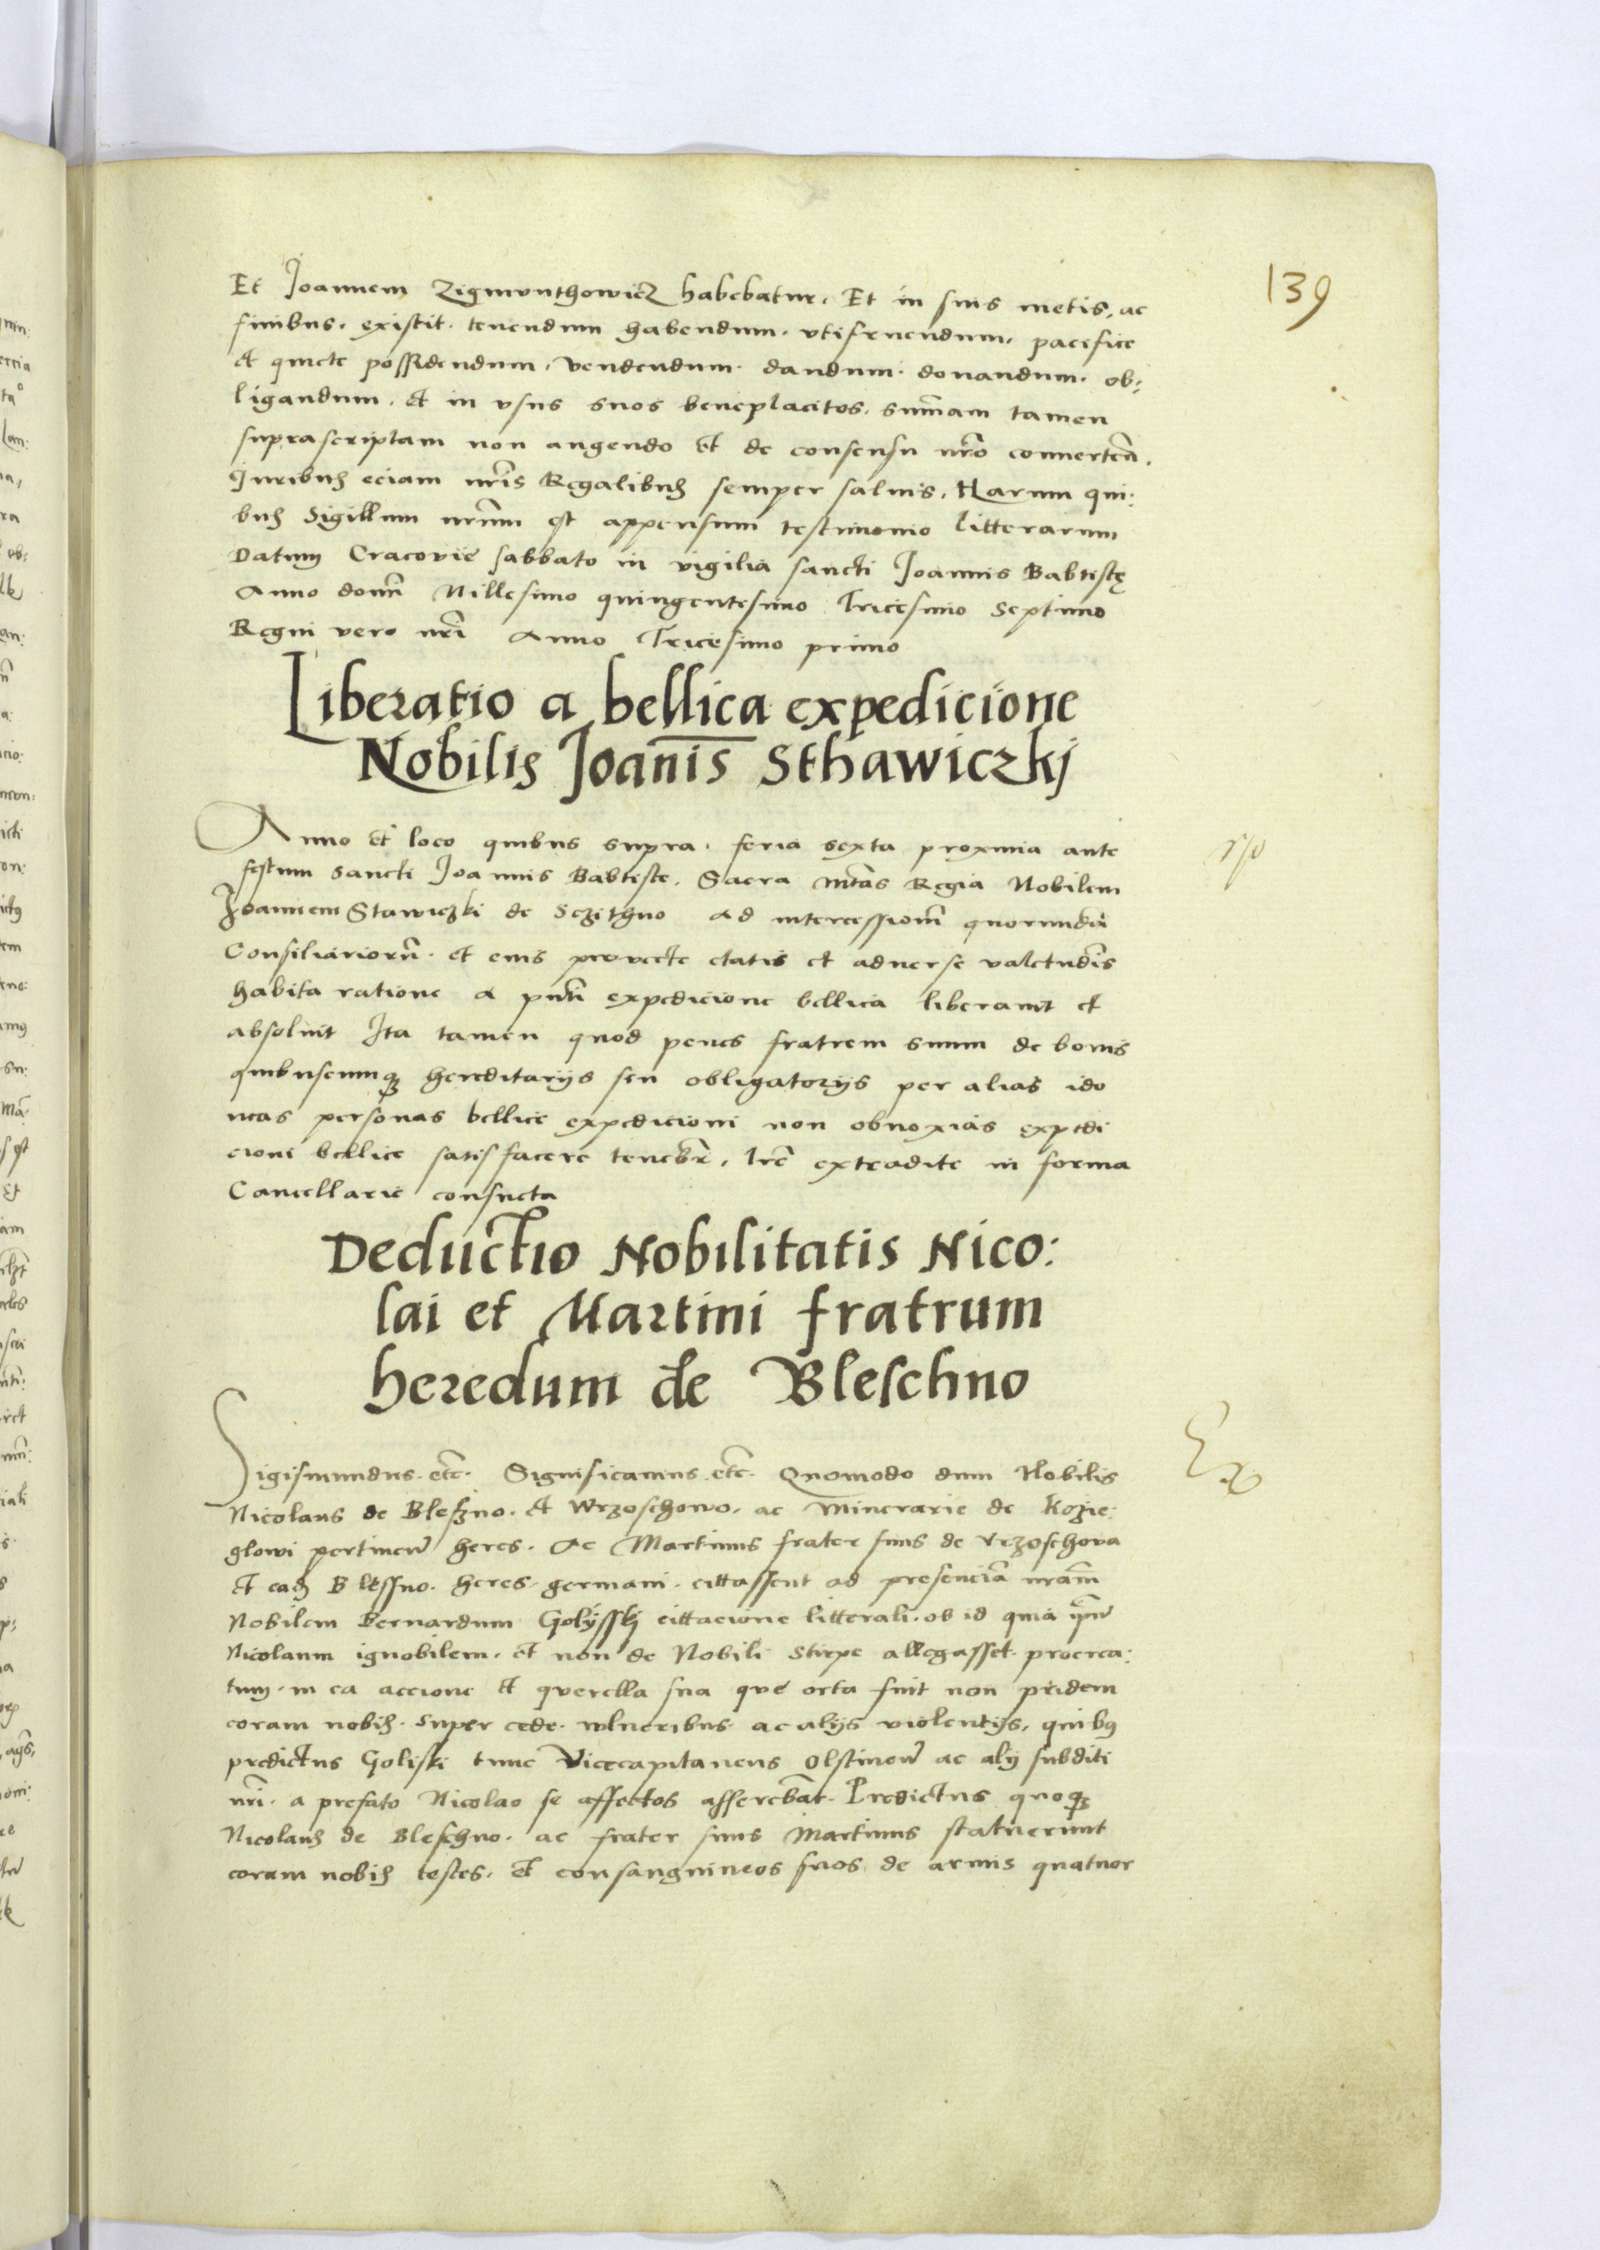 139
Et Joannem Zigmvnthowicz habebatur. Et in suis metis, ac
finibus. existit. tenendum habendum. vtifruendum. pacifice
et quiete possidendum. vendendum. dandum. donandum. ob:
ligandum. et in vsus suos beneplacitos. summam tamen
suprascriptam non augendo et de consensu nr̃o conuerten̄.
Juribus eciam nr̃is Regalibus semper saluis. Harum qui:
bus Sigillum nrm̃ est appensum testimonio litterarum
Datum Cracovie sabbato in vigilia sancti Joannis Babtistę
Anno domñ Millesimo quingentesimo Tricesimo Septimo
Regni vero nr̃i Anno Tricesimo primo
Liberatio a bellica expedicione
Nobilis Joanīs Sthawiczkj
Anno et loco quibus supra. feria sexta proxima ante
festum sancti Joannis Babtiste. Sacra Mtãs Regia Nobilem
Joannem Stawiczki de Sczithno ad intercessionẽ quorundã
Consiliariorũ. et eius provecte etatis et aduerse valetudĩs
habita ratione a pñti expedicione bellica liberauit et
absoluit Ita tamen quod penes fratrem suum de bonis
quibuscumqȝ hereditarijs seu obligatorijs per alias ido
neas personas bellice expedicioni non obnoxias expedi
cioni bellice satisfacere tenebr̃. Lr̃e extradite in forma
Cancellarie consueta
Deductio Nobilitatis Nico:
lai et Martini fratrum
heredum de Bleschno
Sigismundus. etc̃. Significamus etc̃. Quomodo dum Nobilis
Nicolaus de Bleszno. et Wrzoschowo. ac Minerarie de Kozie:
glowi pertineñ heres. Ac Martinus frater suus de Vrzoschova
et eadȝ Blessno. heres. germani. cittassent ad presenciã nrãm
Nobilem Bernardum Golijsskj cittacione litterali. ob id quia ip̃m
Nicolaum ignobilem. et non de Nobili stirpe allegasset. procrea:
tum. in ea accione et querella sua que orta fuit non pridem
coram nobis. super cede. wlneribus ac alijs violentijs, quibus
predictus Goliski tunc Vicecapitaneus Olstineñ ac alij subditi
nr̃i. a prefato Nicolao se affectos asserebãt. Predictus quoqȝ
Nicolaus de Bleschno. ac frater suus Martinus statuerunt
coram nobis testes. et consanguineos suos de armis quatuor